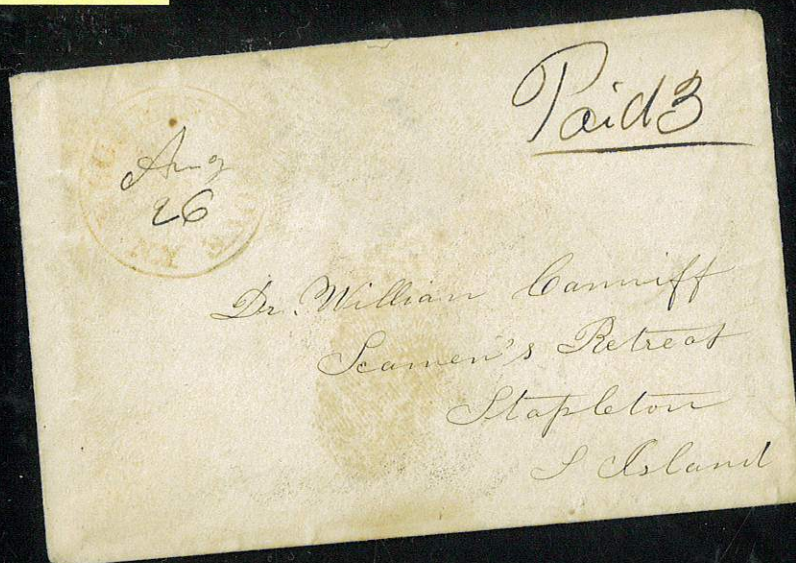 Paid 3
Aug
26
NY
Dr. William Canniff
Seamen's Retreat
Stapleton
S Island